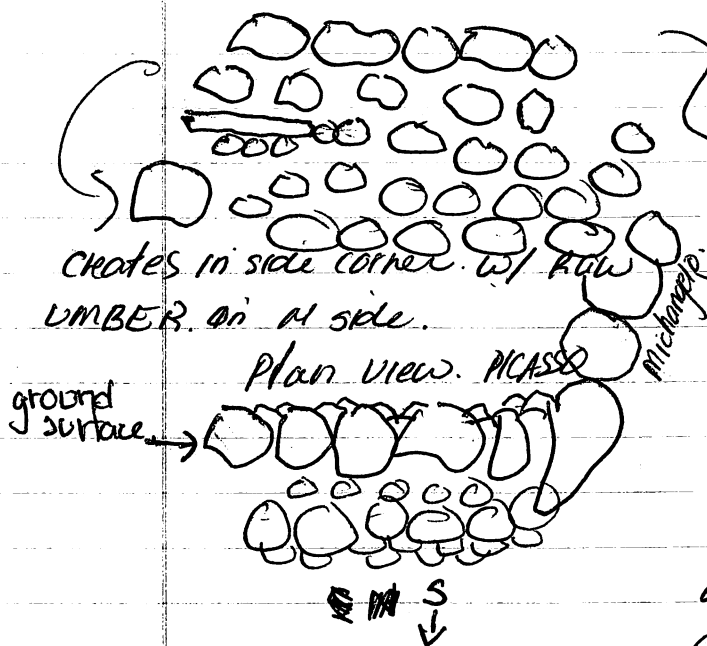 creates in side corner. w/ RAW
UMBER. on N side.
Plan view. PICASSO
Michanglo.
ground
surface
S